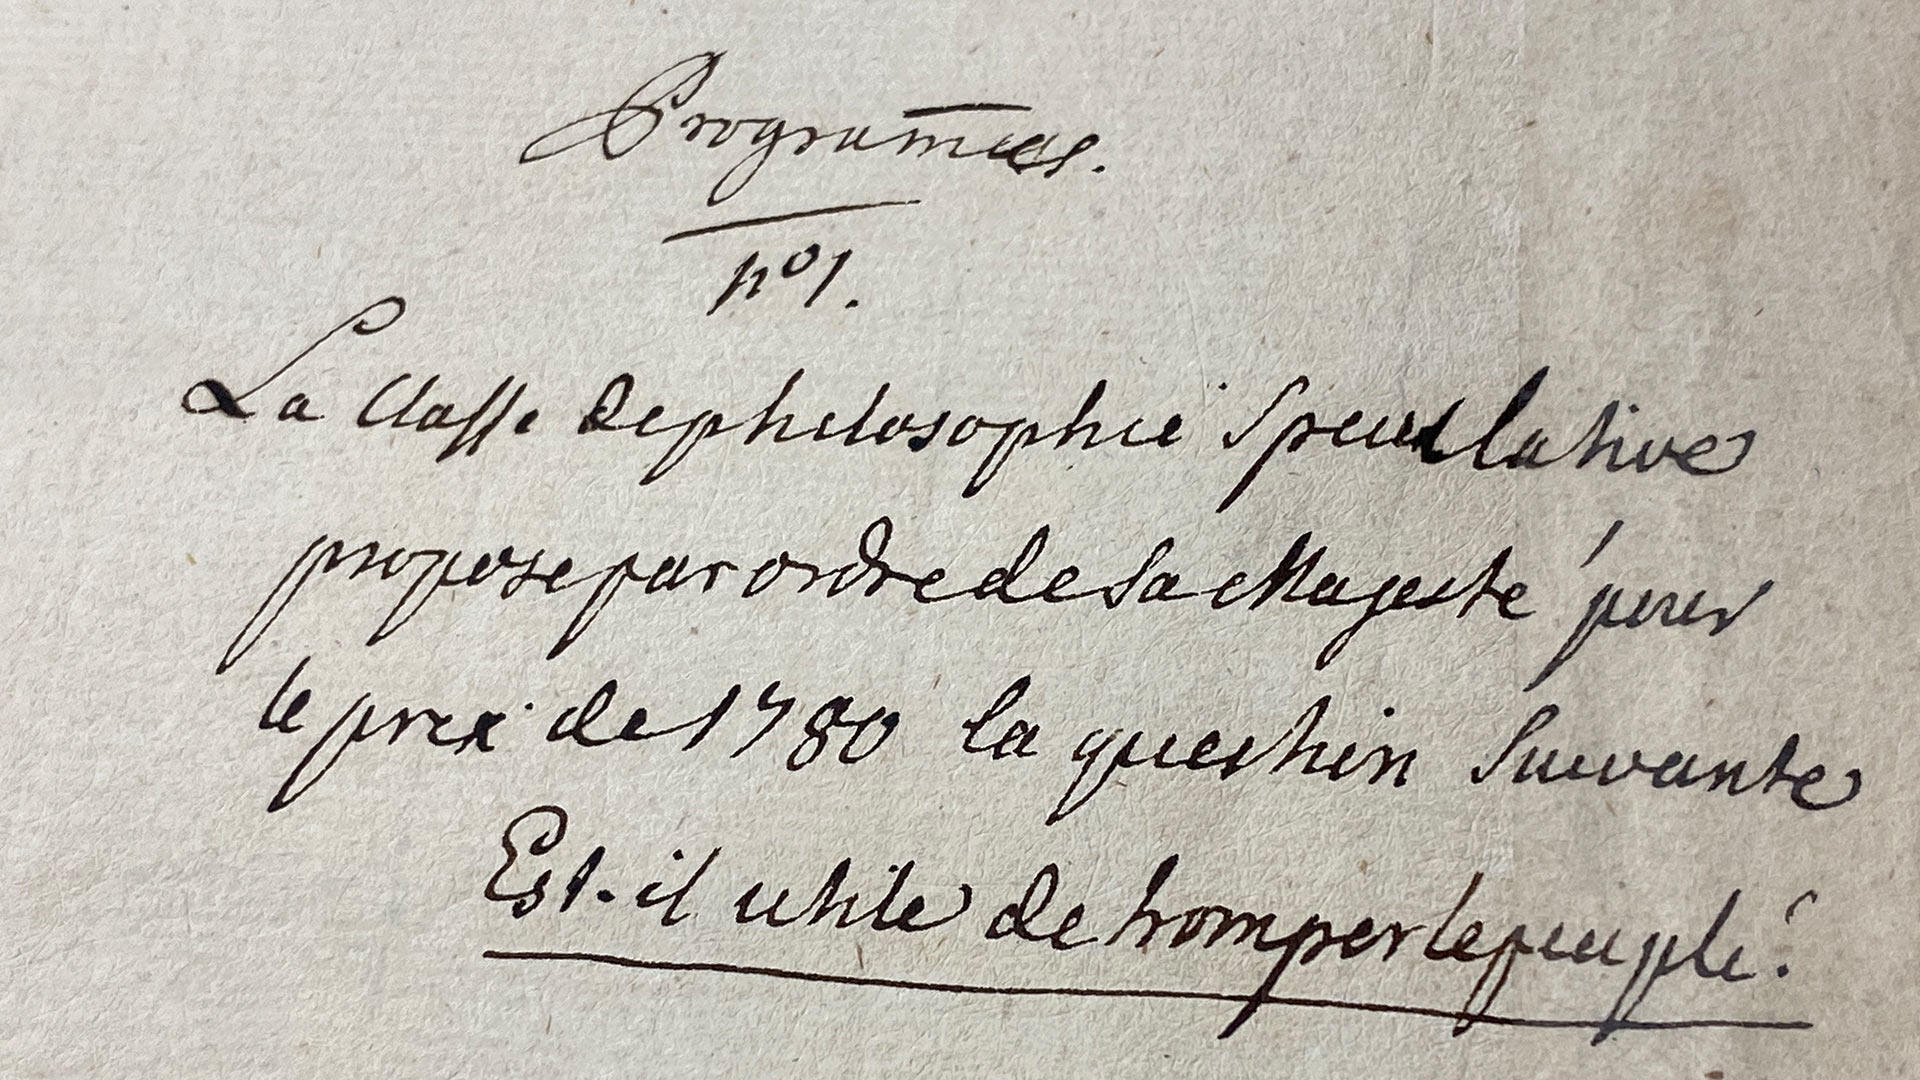 Programm̄es.
nº 1.
La Classe de philosophie Speculative
propose par ordre de Sa Majesté pour
le prix de 1780 la question Suivante
Est-il utile de tromper le peuple?